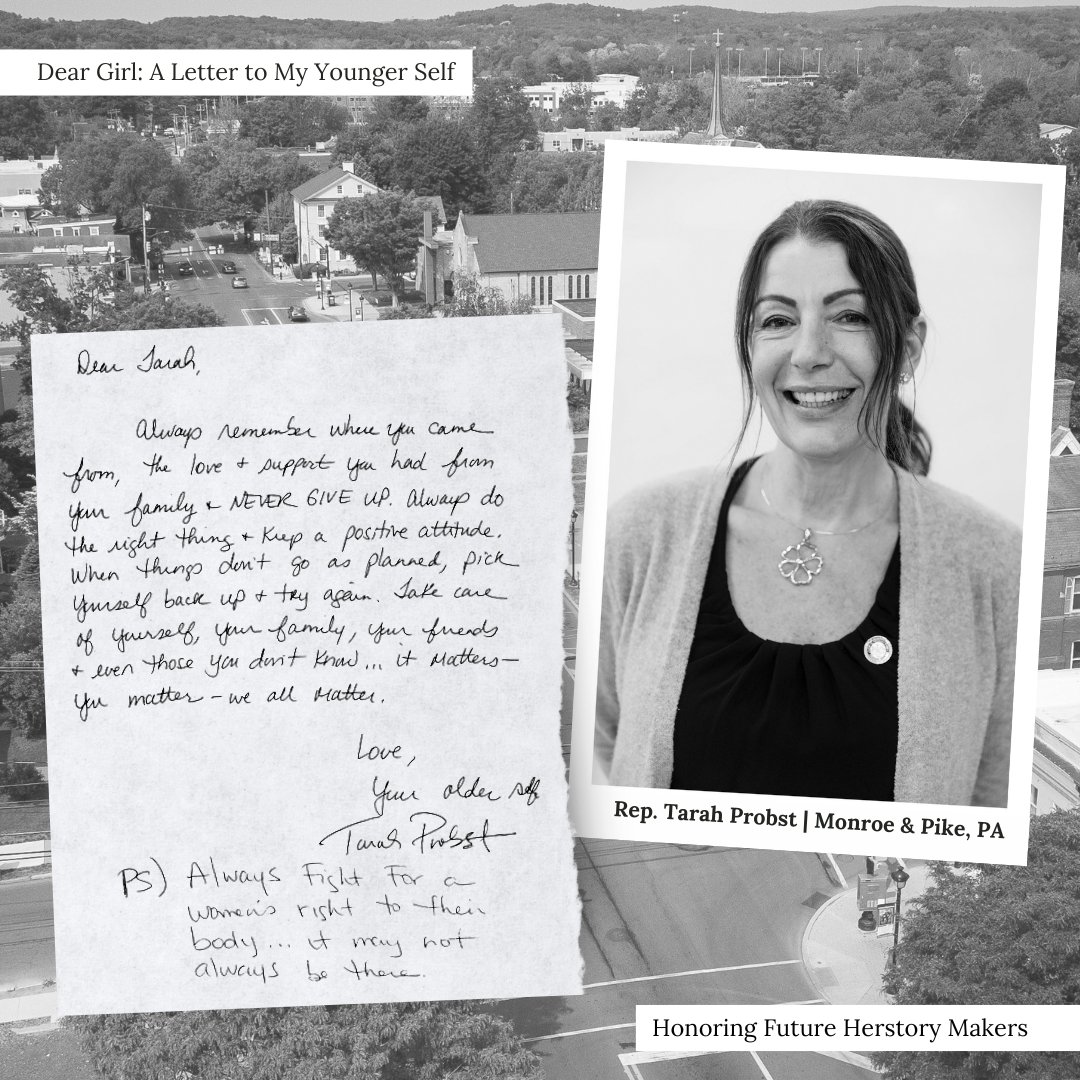 Dear Girl: A Letter to My Younger Self
Dear Tarah,
Always remember where you came
from, the love + support you had from
your family + NEVER GIVE UP. Always do
the right thing + keep a positive attitude.
When things don't go as planned, pick
yourself back up + try again. Take care
of yourself, your family, your friends
+ even those you don't know... it matters-
you matter - we all matter.
Love,
Your older self
Tarah Probst
PS) Always Fight For a
women's right to their
body... it may not
always be there.
Rep. Tarah Probst | Monroe & Pike, PA
Honoring Future Herstory Makers